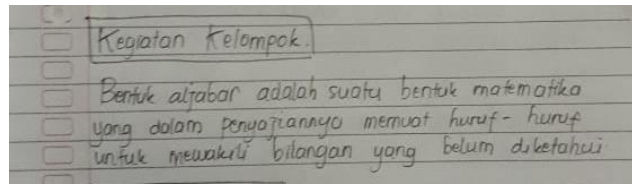 Kegiatan Kelompok.
Bentuk aljabar adalah suatu bentuk matematika
yang dalam penyajiannya memuat huruf-huruf
untuk mewakili bilangan yang belum diketahui